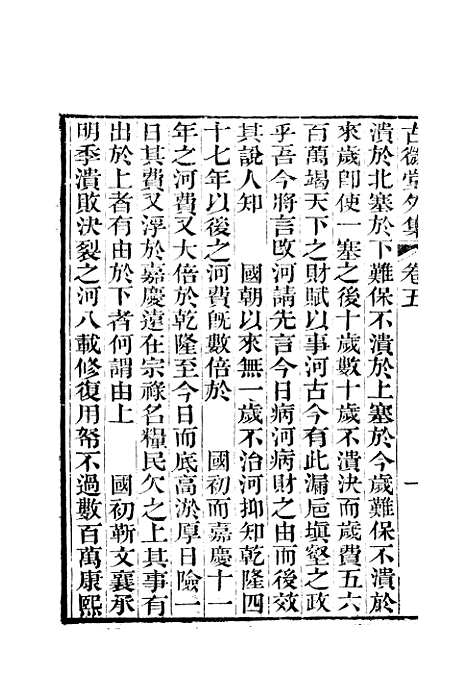 古微堂外集 卷五 一
潰於北塞於下難保不潰於上塞於今歲難保不潰於
來歲卽使一塞之後十歲數十歲不潰決而歲費五六
百萬竭天下之財賦以事河古今有此漏巵塡壑之政
乎吾今將言改河請先言今日病河病財之由而後效
其說人知 國朝以來無一歲不治河抑知乾隆四
十七年以後之河費旣數倍於 國初而嘉慶十一
年之河費又大倍於乾隆至今日而底高淤厚日險一
日其費又浮於嘉慶遠在宗祿名糧民欠之上其事有
出於上者有由於下者何謂由上 國初靳文襄承
明季潰敗決裂之河八載修復用帑不過數百萬康熙